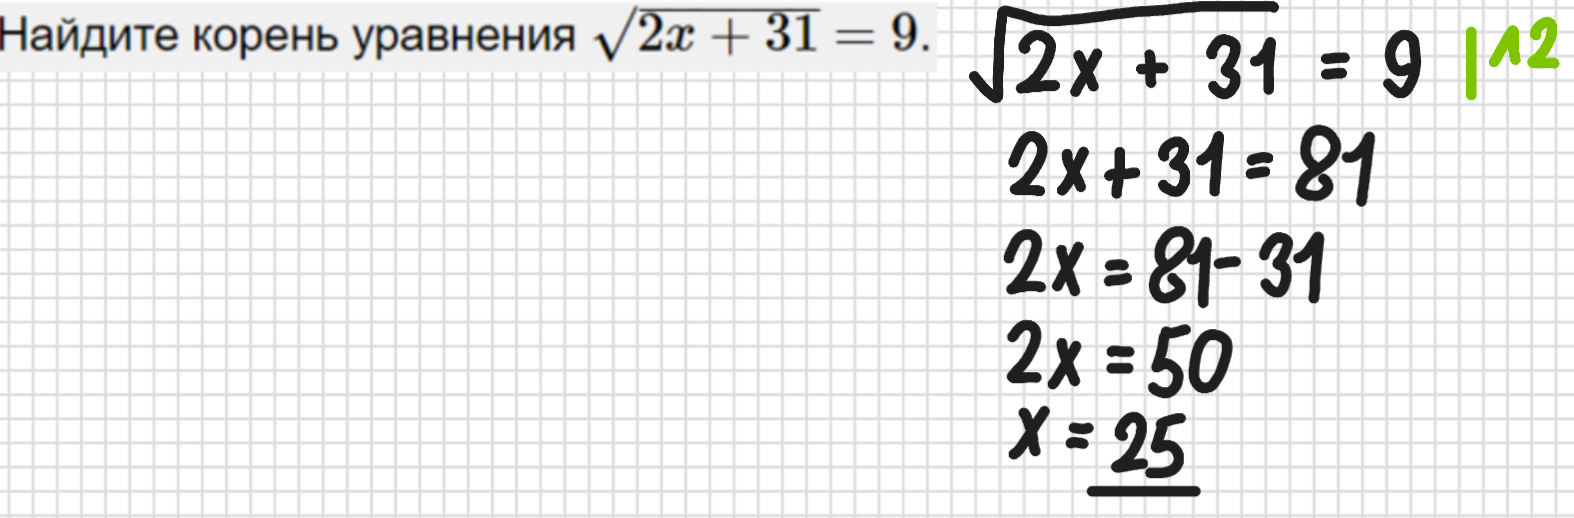 Найдите корень уравнения √2x + 31 = 9.
√2x + 31 = 9 |^2
2x + 31 = 81
2x = 81 - 31
2x = 50
x = 25